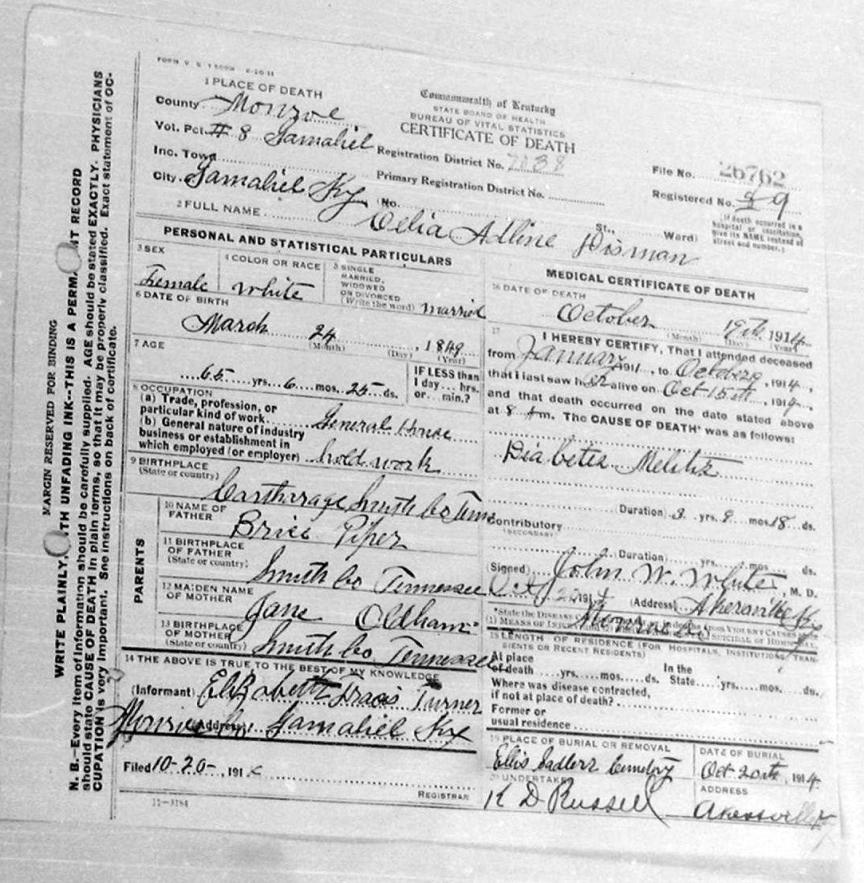 MARGIN RESERVED FOR BINDING
WRITE PLAINLY, WITH UNFADING INK--THIS IS A PERMANENT RECORD
N. B.--Every item of information should be carefully supplied. AGE should be stated EXACTLY. PHYSICIANS
should state CAUSE OF DEATH in plain terms, so that it may be properly classified. Exact statement of OC-
CUPATION is very important. See instructions on back of certificate.
1 PLACE OF DEATH
County Monroe
Vot. Pct. # 8 Gamaliel
Inc. Town
City Gamaliel Ky
Commonwealth of Kentucky
STATE BOARD OF HEALTH
BUREAU OF VITAL STATISTICS
CERTIFICATE OF DEATH
Registration District No.
Primary Registration District No.
(No. St., Ward)
File No. 26762
Registered No. 89
[If death occurred in a
hospital or institution,
give its NAME instead of
street and number.]
2 FULL NAME Celia Alline Disman
PERSONAL AND STATISTICAL PARTICULARS
3 SEX
Female
4 COLOR OR RACE
White
5 SINGLE
MARRIED,
WIDOWED
OR DIVORCED
(Write the word) married
6 DATE OF BIRTH
March 24, 1849
(Month) (Day) (Year)
7 AGE
65 yrs. 6 mos. 25 ds.
IF LESS than
1 day... hrs.
or... min.?
8 OCCUPATION
(a) Trade, profession, or
particular kind of work General House
(b) General nature of industry
business or establishment in
which employed (or employer) hold work
9 BIRTHPLACE
(State or country)
Cartharage Smith Co Tenn
PARENTS
10 NAME OF
FATHER
Brice Piper
11 BIRTHPLACE
OF FATHER
(State or country)
Smith Co Tennessee
12 MAIDEN NAME
OF MOTHER
Jane Oldham
13 BIRTHPLACE
OF MOTHER
(State or country)
Smith Co Tennessee
14 THE ABOVE IS TRUE TO THE BEST OF MY KNOWLEDGE
(Informant) Turner
(Address) Gamaliel Ky
Filed 10-20-, 191
REGISTRAR
11—3184
MEDICAL CERTIFICATE OF DEATH
16 DATE OF DEATH
October 19th 1914
(Month) (Day) (Year)
17 I HEREBY CERTIFY, That I attended deceased
from January 1911, to October, 1914,
that I last saw her alive on Oct 15th, 1914,
and that death occurred on the date stated above
at 8 Am. The CAUSE OF DEATH* was as follows:
Diabetis Melitis
Duration 3 yrs. 9 mos. 18 ds.
Contributory
(SECONDARY)
Duration yrs. mos. ds.
(Signed) John W. White, M. D.
Oct 20 1914 (Address) Akersville Ky
Monroe Co
15 LENGTH OF RESIDENCE (FOR HOSPITALS, INSTITUTIONS, TRAN-
SIENTS OR RECENT RESIDENTS)
At place
of death yrs. mos. ds.
In the
State yrs. mos. ds.
Where was disease contracted,
if not at place of death?
Former or
usual residence
19 PLACE OF BURIAL OR REMOVAL
Ellis Sadlerr Cemetery
DATE OF BURIAL
Oct 20th, 1914
20 UNDERTAKER
K D Russell
ADDRESS
Akersville Ky